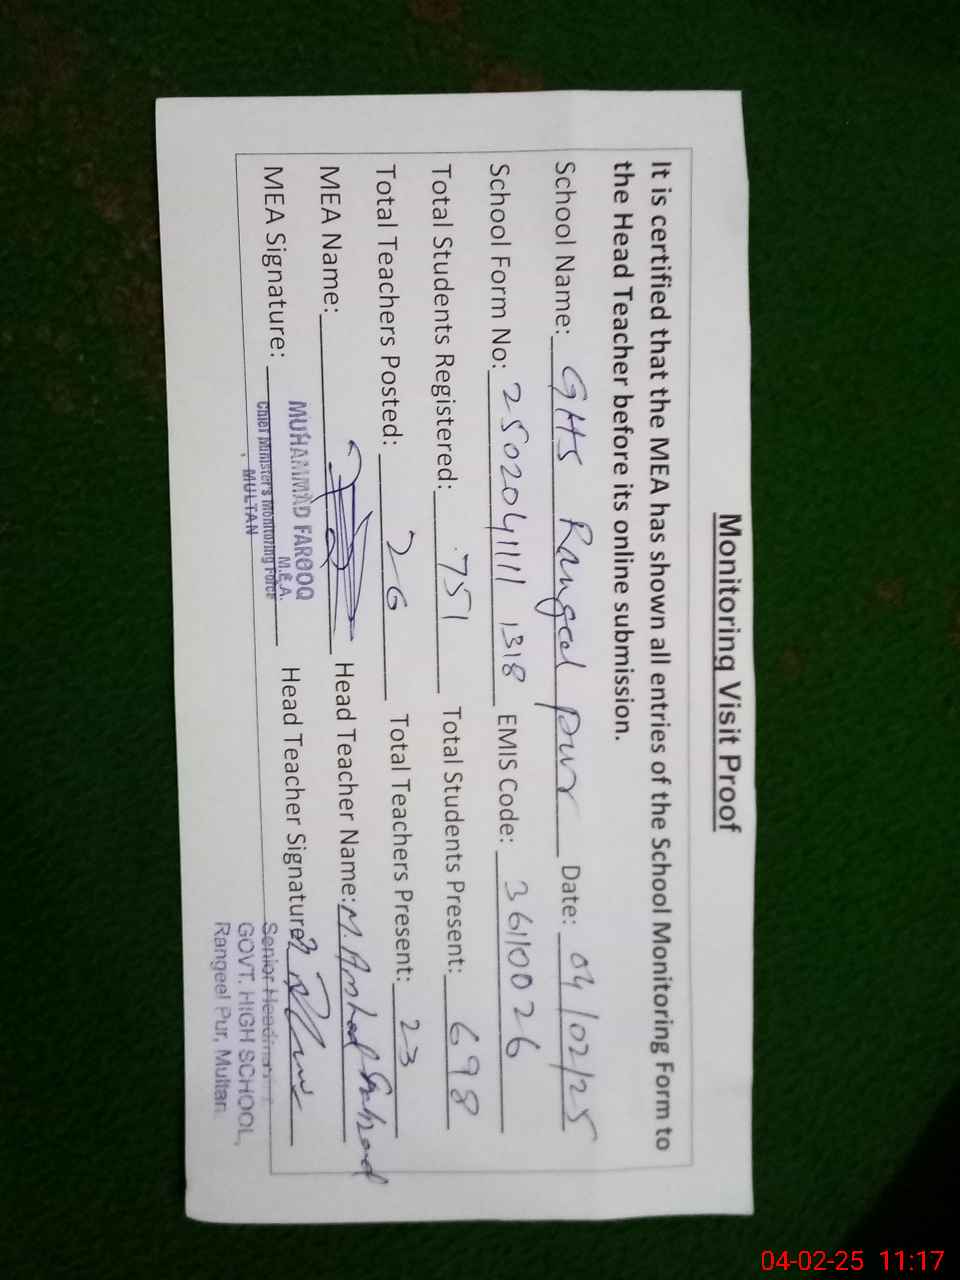 Monitoring Visit Proof
It is certified that the MEA has shown all entries of the School Monitoring Form to
the Head Teacher before its online submission.
School Name: GHS Rangeel pur Date: 04/02/25
School Form No: 25020411111318 EMIS Code: 36110026
Total Students Registered: 751 Total Students Present: 698
Total Teachers Posted: 26 Total Teachers Present: 23
MEA Name: Head Teacher Name: M. Arshad
MEA Signature: Head Teacher Signature:
MUHAMMAD FAROOQ
M.E.A.
Chief Minister's Monitoring Force
MULTAN
Senior Headmaster
GOVT. HIGH SCHOOL,
Rangeel Pur, Multan.
04-02-25 11:17